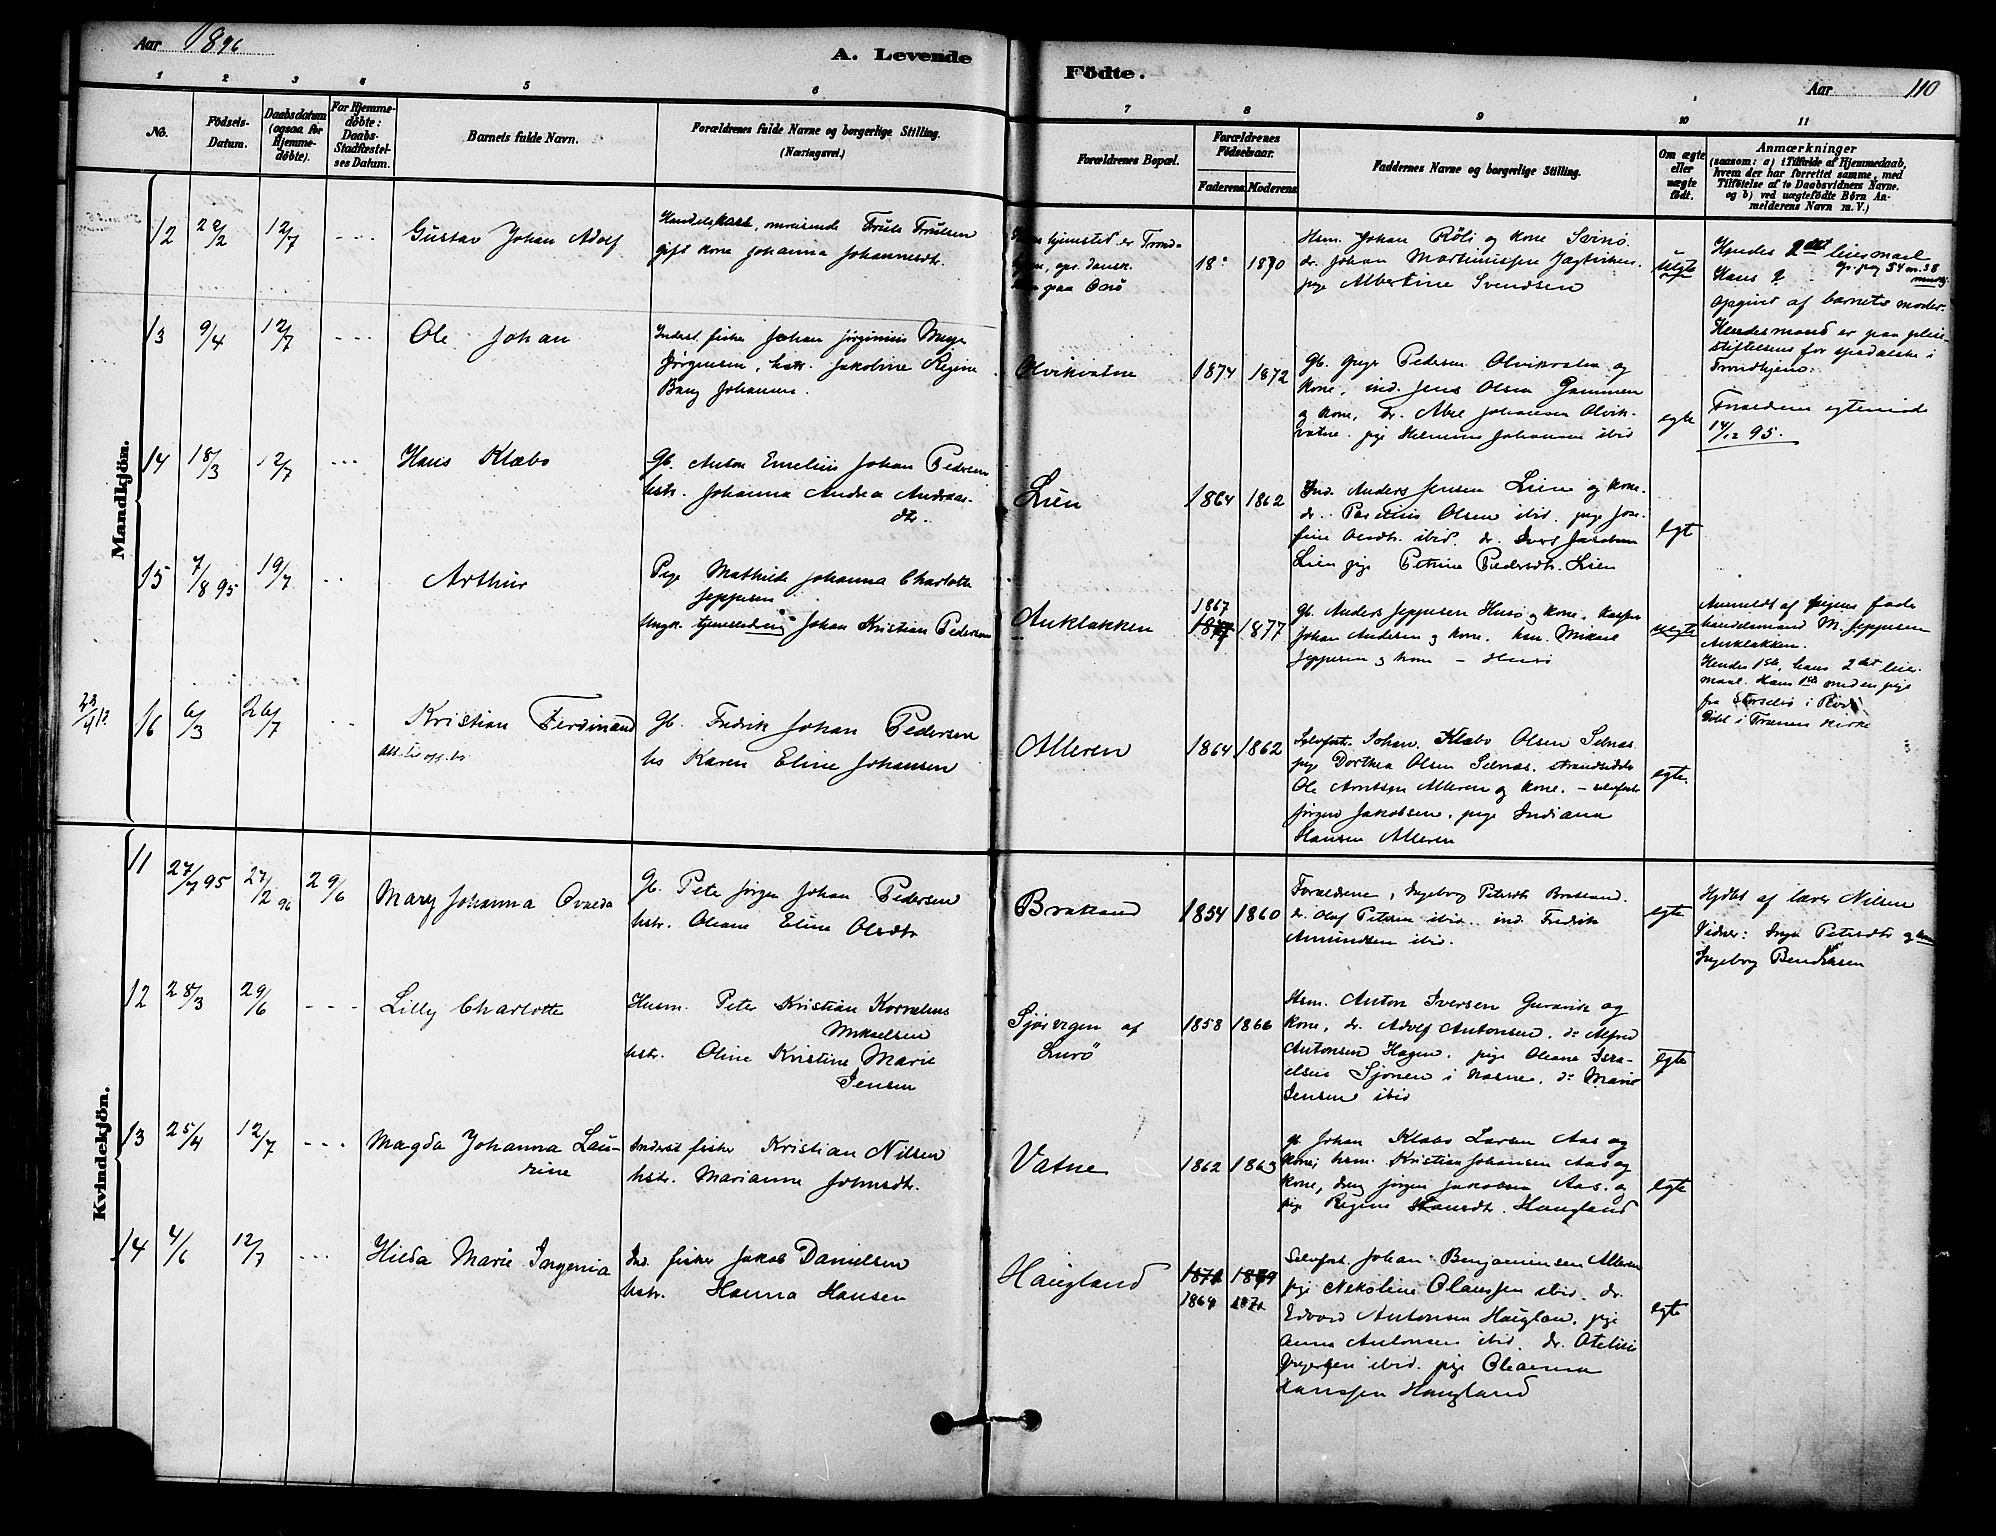 Aar 1896
A. Levende
Födte.
Aar
110
1 2 3 4 5 6 7 8 9 10 11
No.
Födsels-
Datum.
Daabsdatum
(ogsaa for
Hjemme-
döbte).
For Hjemme-
döbte:
Daabs-
Stadfæstel-
ses Datum.
Barnets fulde Navn.
Forældrenes fulde Navne og borgerlige Stilling.
(Næringsvei.)
Forældrenes Bopæl.
Forældrenes
Födselsaar.
Faderens Moderens
Faddernes Navne og borgerlige Stilling.
Om ægte
eller
uægte
födt.
Anmærkninger
(saasom: a) i Tilfælde af Hjemmedaab,
hvem der har forrettet samme, med
Tilföielse af to Daabsvidners Navne.
og b) ved uægtefödte Börn An-
melderens Navn m. V.)
Mandkjön.
12
22/2
12/7
Gustav Johan Adolf
omreisende Truls Trulsen
gift kone Johanna Johannesdtr.
18
1870
Hsm. Johan Röli og kone Svinö.
dr. Johan Martinussen
pige Albertine Svendsen
uegte
Hendes 2det leiermaal
Hans ?
opgivet af barnets moder.
Hendes mand er paa pleie-
stiftelsen for spedalske i
Trondhjem.
13
9/4
12/7
Ole Johan
Inderst. fisker Johan Jörginius Meyer
Jörgensen, hstr. Jakobine Regine
Bang Johansen.
Olvikvatne
1874 1872
Gb. Inger Pedersen Olvikvatne og
kone, ind. Jens Olsen Gammen
og kone, dr. Abel Johansen Olvik-
vatne. pige Helmine Johansen ibid
egte
Foreldrene egteviede
14/12 95.
14
18/3
12/7
Hans Klæbo
Gb. Anton Emelius Johan Pedersen
hstr. Johanna Andrea Andreas-
dtr.
Lien
1864 1862
Ind. Anders Jensen Lien og kone.
dr. Olsen ibid. pige Jose-
fine Olsdtr. ibid. dr. Ivers Jacobsen
Lien pige Petrine Pedersdtr. Lien
egt
15
7/8 95
19/7
Arthur
Pige Mathilde Johanna Charlotte
Jeppesen
Ungk. Johan Kristian Pedersen
Auklakken
1867
1877
Gb. Anders Jeppesen Husö og kone.
Johan Andersen og kone. hsm. Mikael
Jeppesen og kone - Husö
uegte
Anmeldt af pigens fader
handelsmand M. Jeppesen
Auklakken.
Hendes 1ste, hans 2det leier-
maal. Hans 1ste med en pige
fra Storselsö i Rödö
Döbt i Trænen kirke
23/4 12
16
6/3
26/7
Kristian Ferdinand
Gb. Fredrik Johan Pedersen
hs Karen Eline Johansen
Alteren
1864 1862
Selvfost. Johan Klæbo Olsen Selnæs
pige Dorthea Olsen Selnæs. strandsidder
Ole Arntsen Alteren og kone. - selvfost
Jörgen Jakobsen. pige Indiana
Hansen Alteren
egte.
Kvindekjön.
11
27/7 95
27/2 96
29/6
Mary Johanna Ovalda
Gb. Peter Jörgen Johan Pedersen
hstr. Oliane Eline Olsdtr
Bratland
1854 1860
Foreldrene, Ingeborg Petersdtr Bratland.
dr. Olaf Petersen ibid. ind. Fredrik
Amundsen ibid.
egte
Hjdbt af lærer Nilsen
Vidner: Inga Petersdtr og
Ingeborg Bendiksen
12
28/3
29/6
Lilly Charlotte
Husm. Peter Kristian Kornelius
Mikaelsen
hstr. Oline Kristine Marie
Jensen
Sjösvegen af
Lurö
1858 1866
Hsm. Anton Iversen Guravik og
kone, dr. Adolf Antonsen, do Alfred
Antonsen Hagen, pige Oleane Isra-
elsen Sjonen i Næsne, do Marie
Jensen ibid
egte
13
25/4
12/7
Magda Johanna Lau-
rine
Inderst fisker Kristian Nilsen
hstr. Marianne Johnsdtr.
Vatne
1862 1863
gb. Johan Klæbo Larsen Aas og
kone; hsm. Kristian Johansen Aas og
kone, dreng Jörgen Jakobsen Aas. og
pige Regine Hansdtr. Haugland
egte
14
4/6
12/7
Hilda Marie Ingenia
Ind. fisker Jakob Danielsen
hstr. Hanna Hansen
Haugland
1871 1879
1864 1871
Selvfost Johan Benjaminsen Alteren
pige Nekoline Olaussen ibid. dr.
Edvard Antonsen Hauglan. pige
Anna Antonsen ibid. dr. Otelius
Ingersen ibid. pige Oleanna
Hanssen Haugland
egte